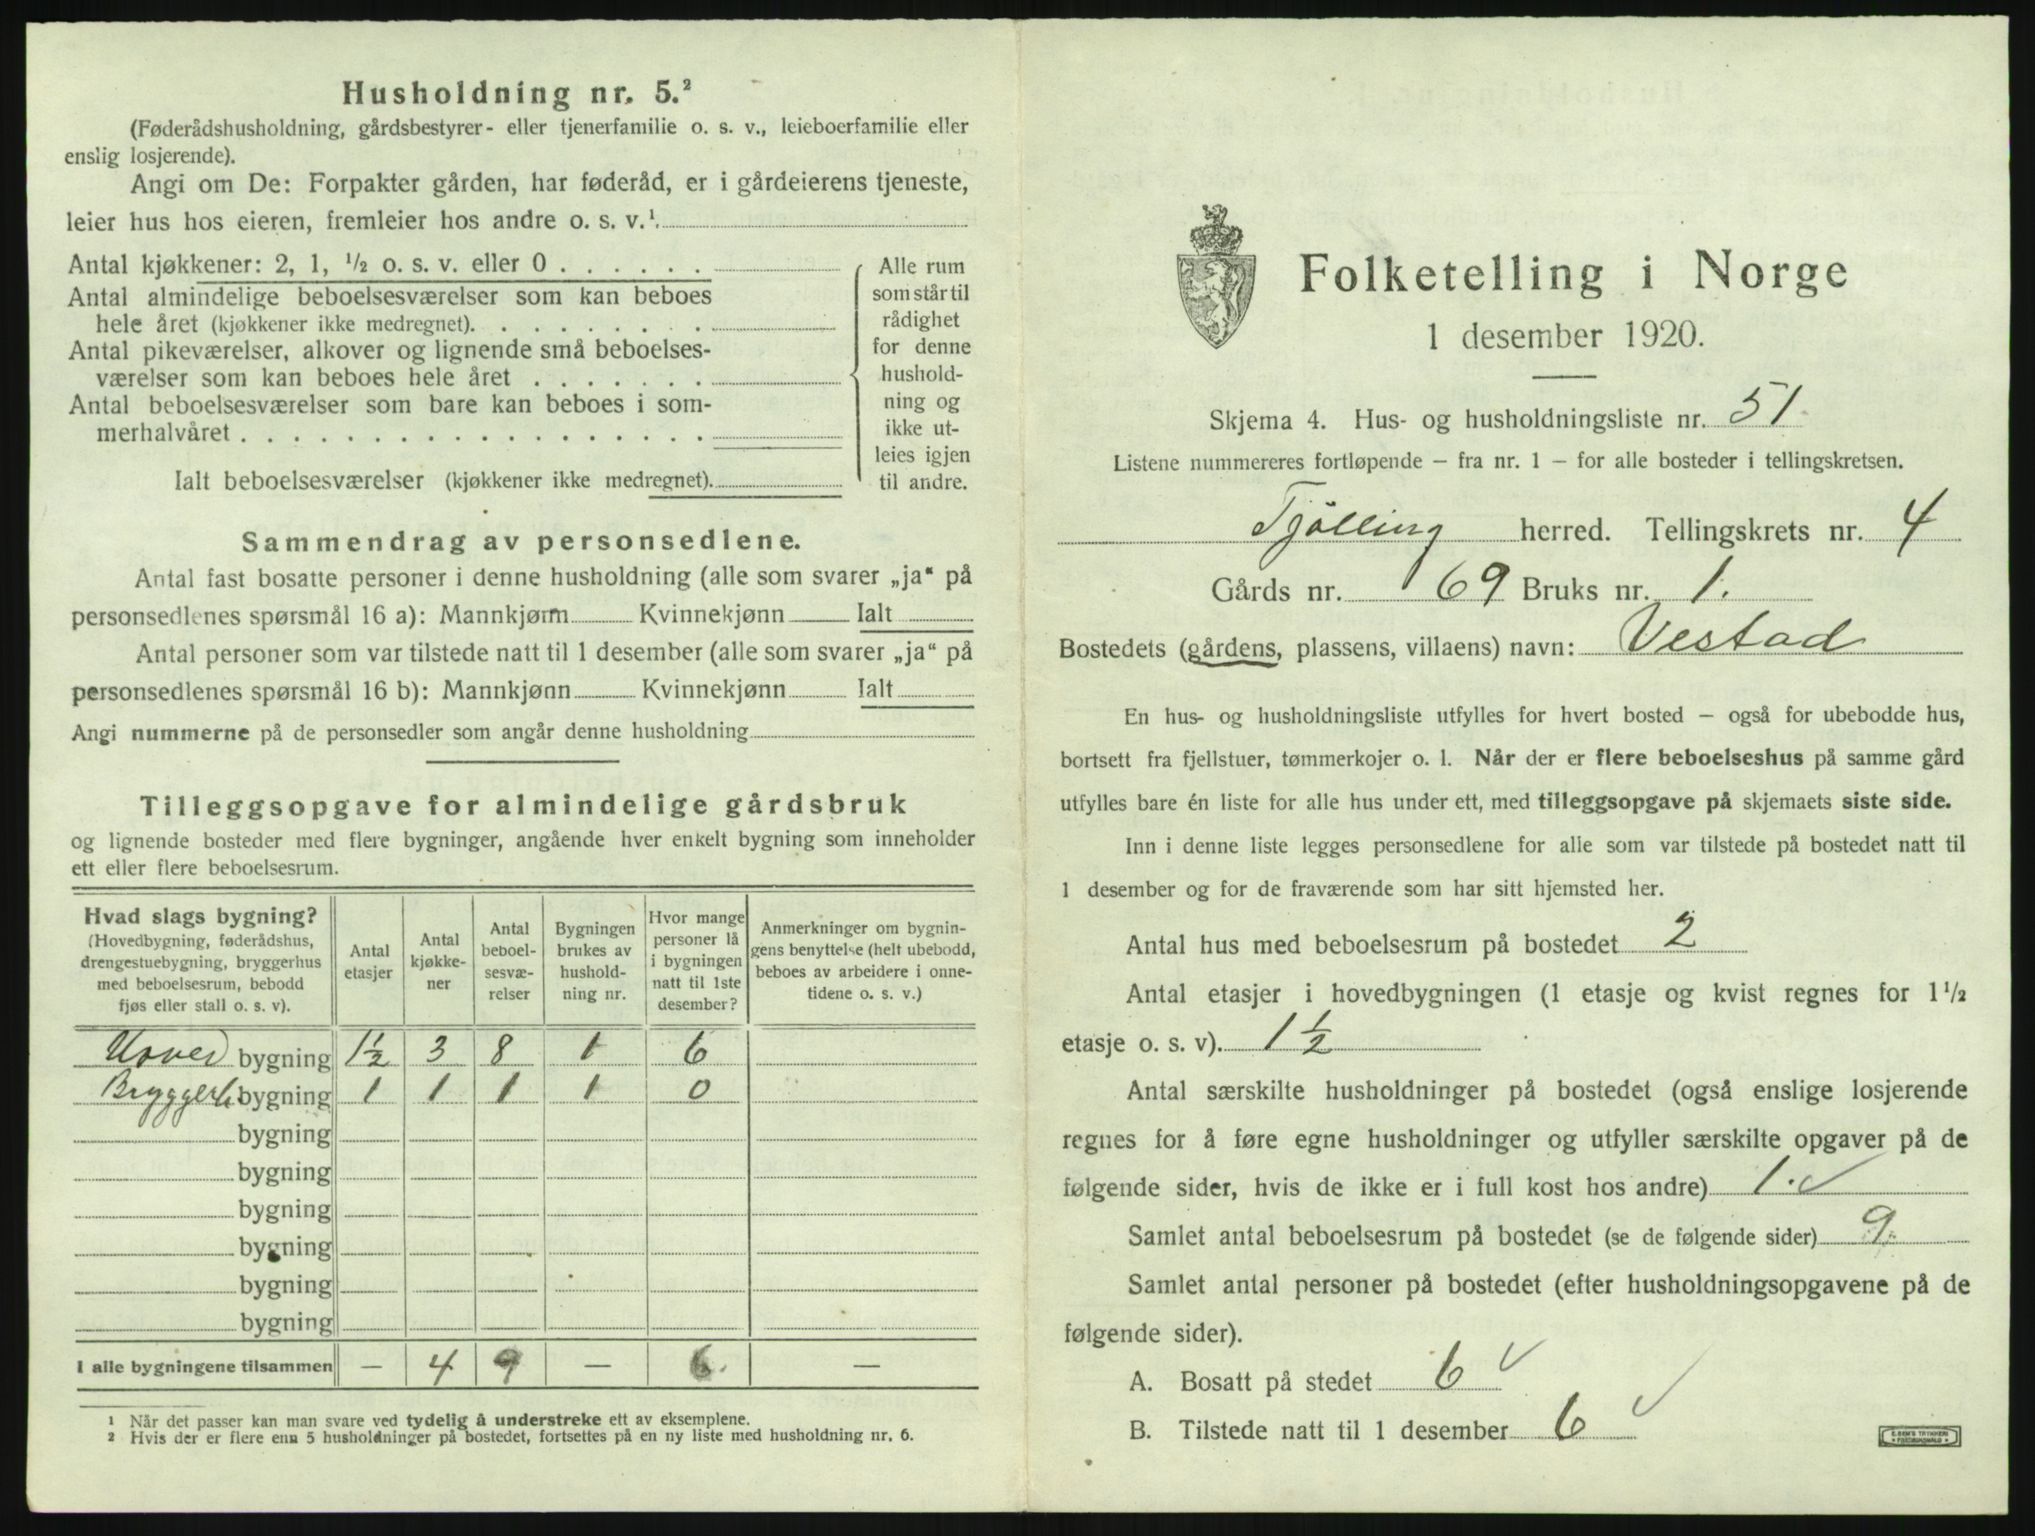 Husholdning nr. 5.²
(Føderådshusholdning, gårdsbestyrer- eller tjenerfamilie o. s. v., leieboerfamilie eller
enslig losjerende).
Angi om De: Forpakter gården, har føderåd, er i gårdeierens tjeneste,
leier hus hos eieren, fremleier hos andre o. s. v.¹
Antal kjøkkener: 2, 1, ½ o. s. v. eller 0
Antal almindelige beboelsesværelser som kan beboes
hele året (kjøkkener ikke medregnet)
Antal pikeværelser, alkover og lignende små beboelses-
værelser som kan beboes hele året
Antal beboelsesværelser som bare kan beboes i som-
merhalvåret
Ialt beboelsesværelser (kjøkkener ikke medregnet)
Alle rum
som står til
rådighet
for denne
hushold-
ning og
ikke ut-
leies igjen
til andre.
Sammendrag av personsedlene.
Antal fast bosatte personer i denne husholdning (alle som svarer „ja“ på
personsedlenes spørsmål 16 a): Mannkjønn Kvinnekjønn Ialt
Antal personer som var tilstede natt til 1 desember (alle som svarer „ja“ på
personsedlenes spørsmål 16 b): Mannkjønn Kvinnekjønn Ialt
Angi nummerne på de personsedler som angår denne husholdning
Tilleggsopgave for almindelige gårdsbruk
og lignende bosteder med flere bygninger, angående hver enkelt bygning som inneholder
ett eller flere beboelsesrum.
Hvad slags bygning?
(Hovedbygning, føderådshus,
drengestuebygning, bryggerhus
med beboelsesrum, bebodd
fjøs eller stall o. s. v).
Antal
etasjer
Antal
kjøkke-
ner
Antal
beboel-
sesvæ-
relser
Bygningen
brukes av
hushold-
ning nr.
Hvor mange
personer lå
i bygningen
natt til 1ste
desember?
Anmerkninger om bygnin-
gens benyttelse (helt ubebodd,
beboes av arbeidere i onne-
tidene o. s. v.)
Hoved bygning 1½ 3 8 1 6
Bryggerh bygning 1 1 1 1 0
bygning
bygning
bygning
bygning
bygning
bygning
I alle bygningene tilsammen — 4 9 — 6. —
1 Når det passer kan man svare ved tydelig å understreke ett av eksemplene.
2 Hvis der er flere enn 5 husholdninger på bostedet, fortsettes på en ny liste med husholdning nr. 6.
Folketelling i Norge
1 desember 1920.
Skjema 4. Hus- og husholdningsliste nr. 51
Listene nummereres fortløpende – fra nr. 1 – for alle bosteder i tellingskretsen.
Tjølling herred. Tellingskrets nr. 4
Gårds nr. 69 Bruks nr. 1.
Bostedets (gårdens, plassens, villaens) navn: Vestad
En hus- og husholdningsliste utfylles for hvert bosted – også for ubebodde hus,
bortsett fra fjellstuer, tømmerkojer o. l. Når der er flere beboelseshus på samme gård
utfylles bare én liste for alle hus under ett, med tilleggsopgave på skjemaets siste side.
Inn i denne liste legges personsedlene for alle som var tilstede på bostedet natt til
1 desember og for de fraværende som har sitt hjemsted her.
Antal hus med beboelsesrum på bostedet 2
Antal etasjer i hovedbygningen (1 etasje og kvist regnes for 1½
etasje o. s. v). 1½
Antal særskilte husholdninger på bostedet (også enslige losjerende
regnes for å føre egne husholdninger og utfyller særskilte opgaver på de
følgende sider, hvis de ikke er i full kost hos andre) 1. ✓
Samlet antal beboelsesrum på bostedet (se de følgende sider) 9.
Samlet antal personer på bostedet (efter husholdningsopgavene på de
følgende sider).
A. Bosatt på stedet 6 ✓
B. Tilstede natt til 1 desember 6 ✓